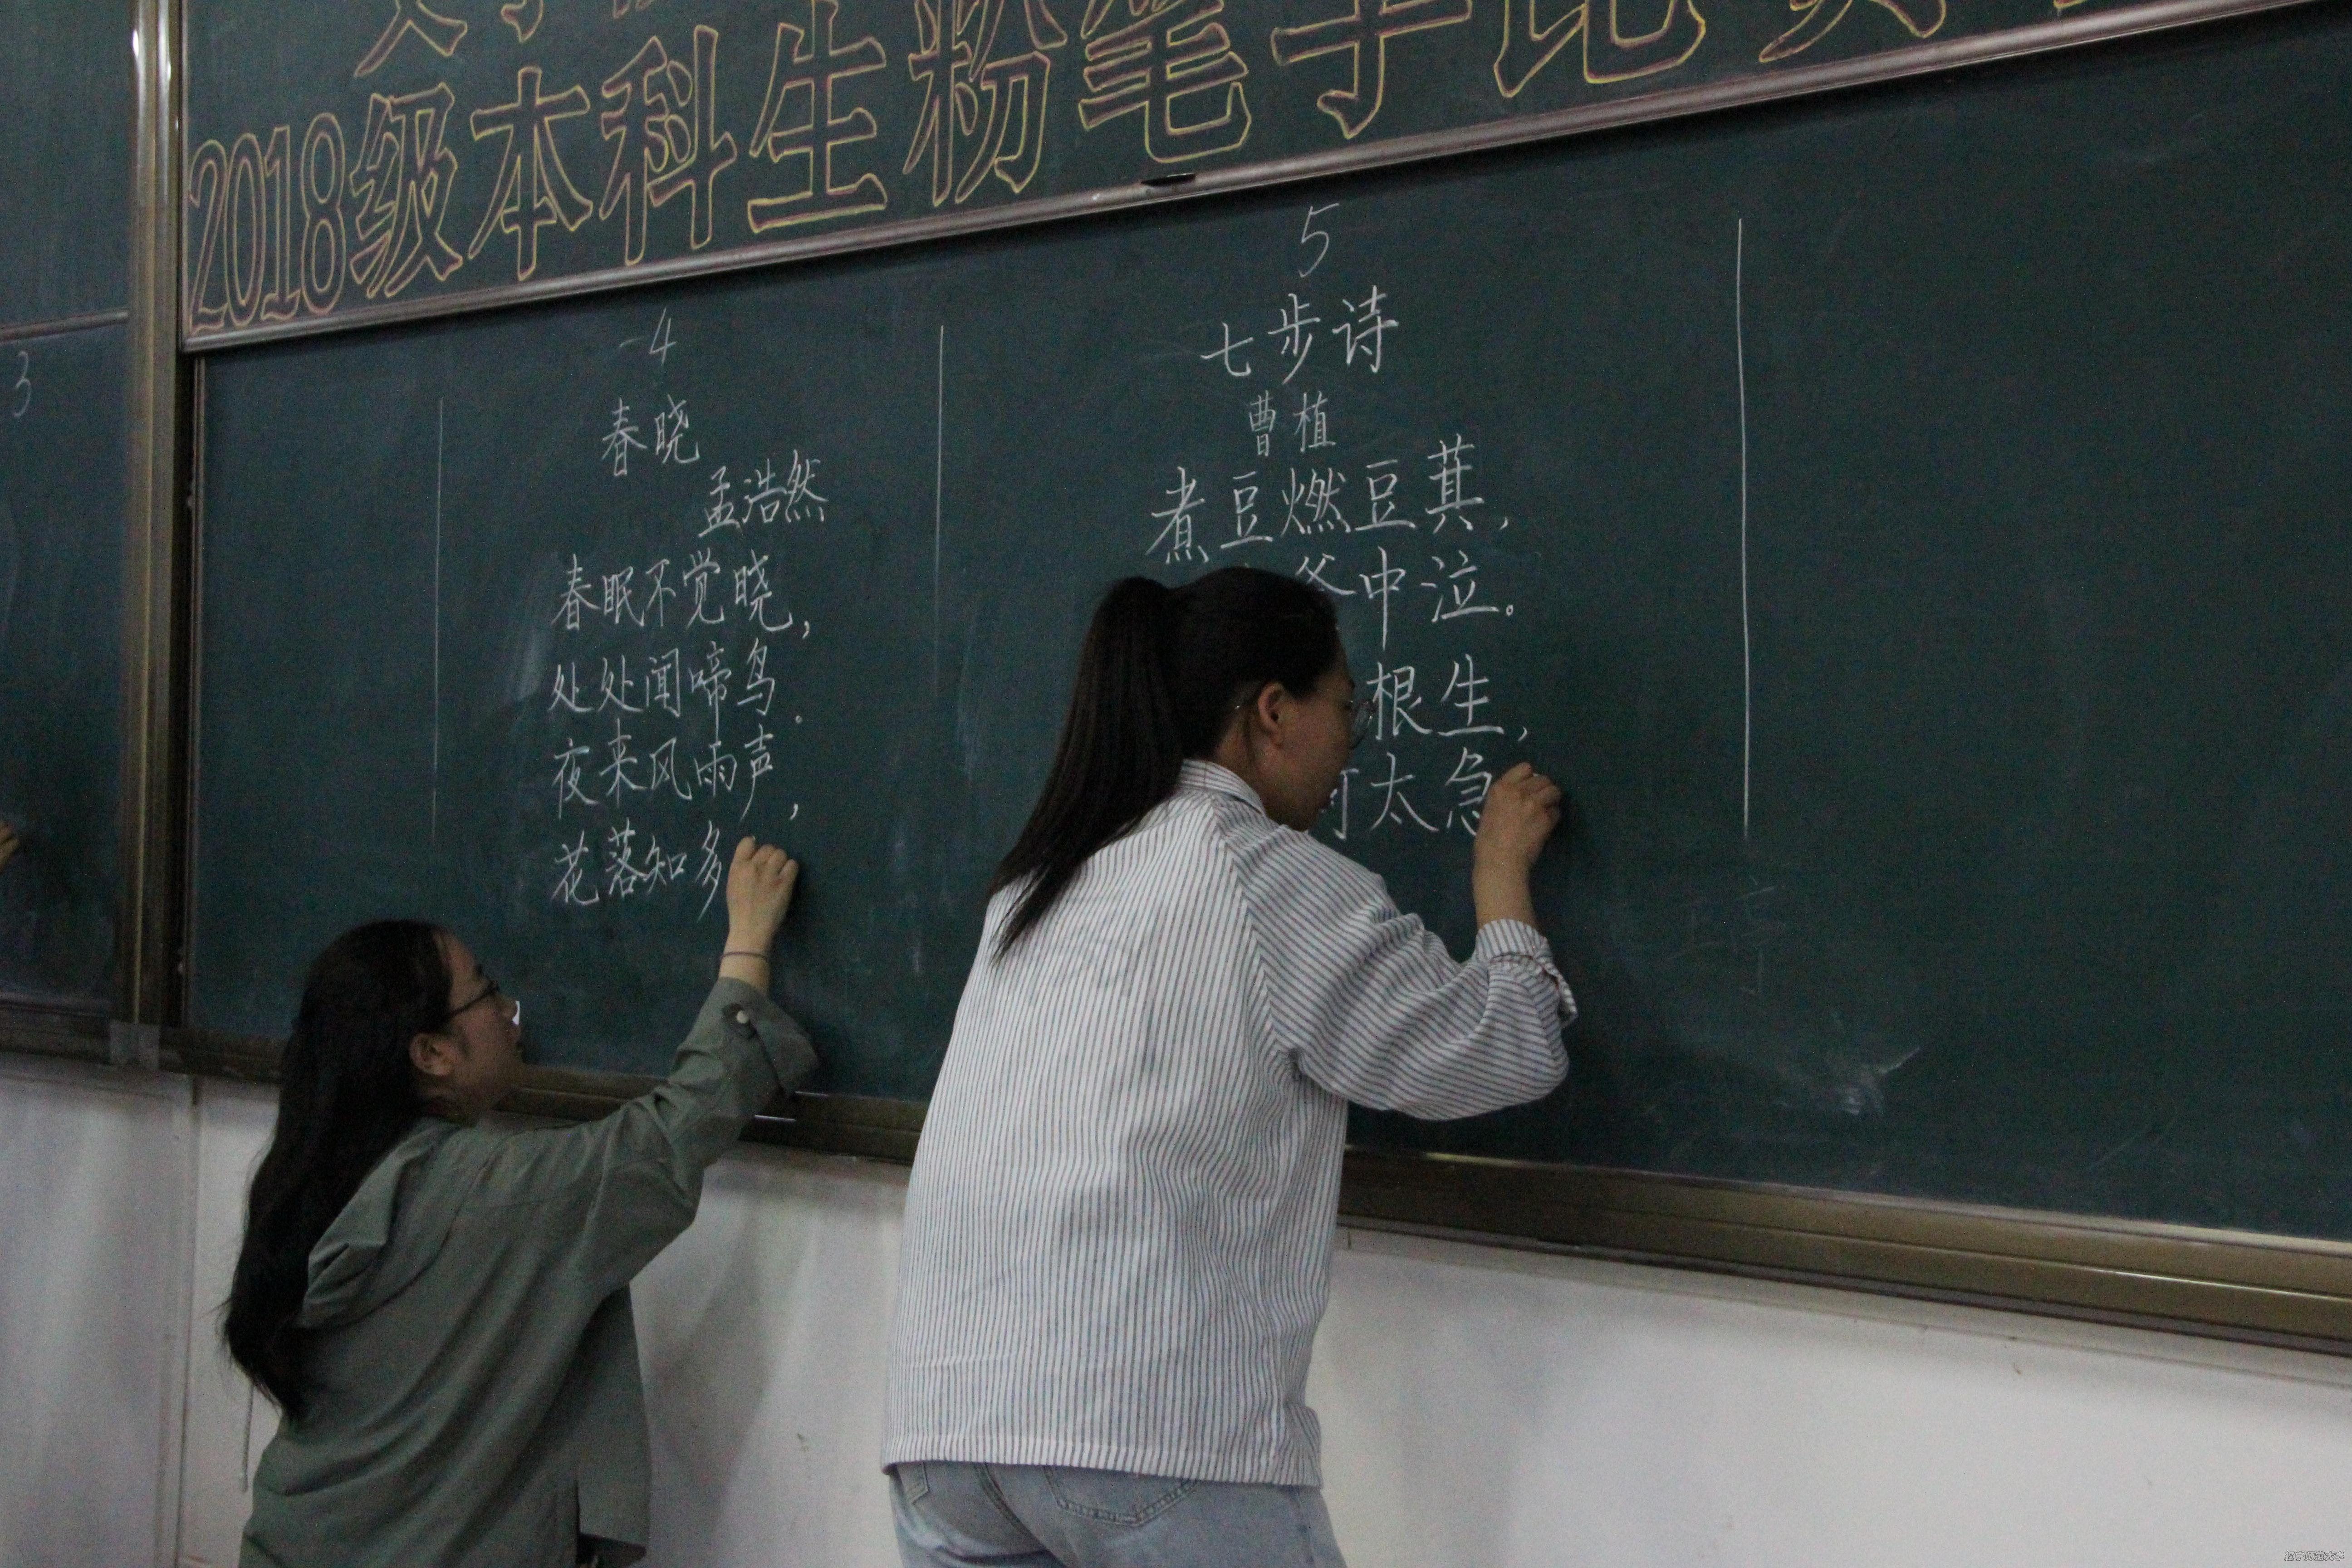 2018级本科生粉笔字比赛
3
4
春晓
孟浩然
春眠不觉晓，
处处闻啼鸟.
夜来风雨声，
花落知多
5
七步诗
曹植
煮豆燃豆萁，
釜中泣。
根生，
太急
辽宁师范大学